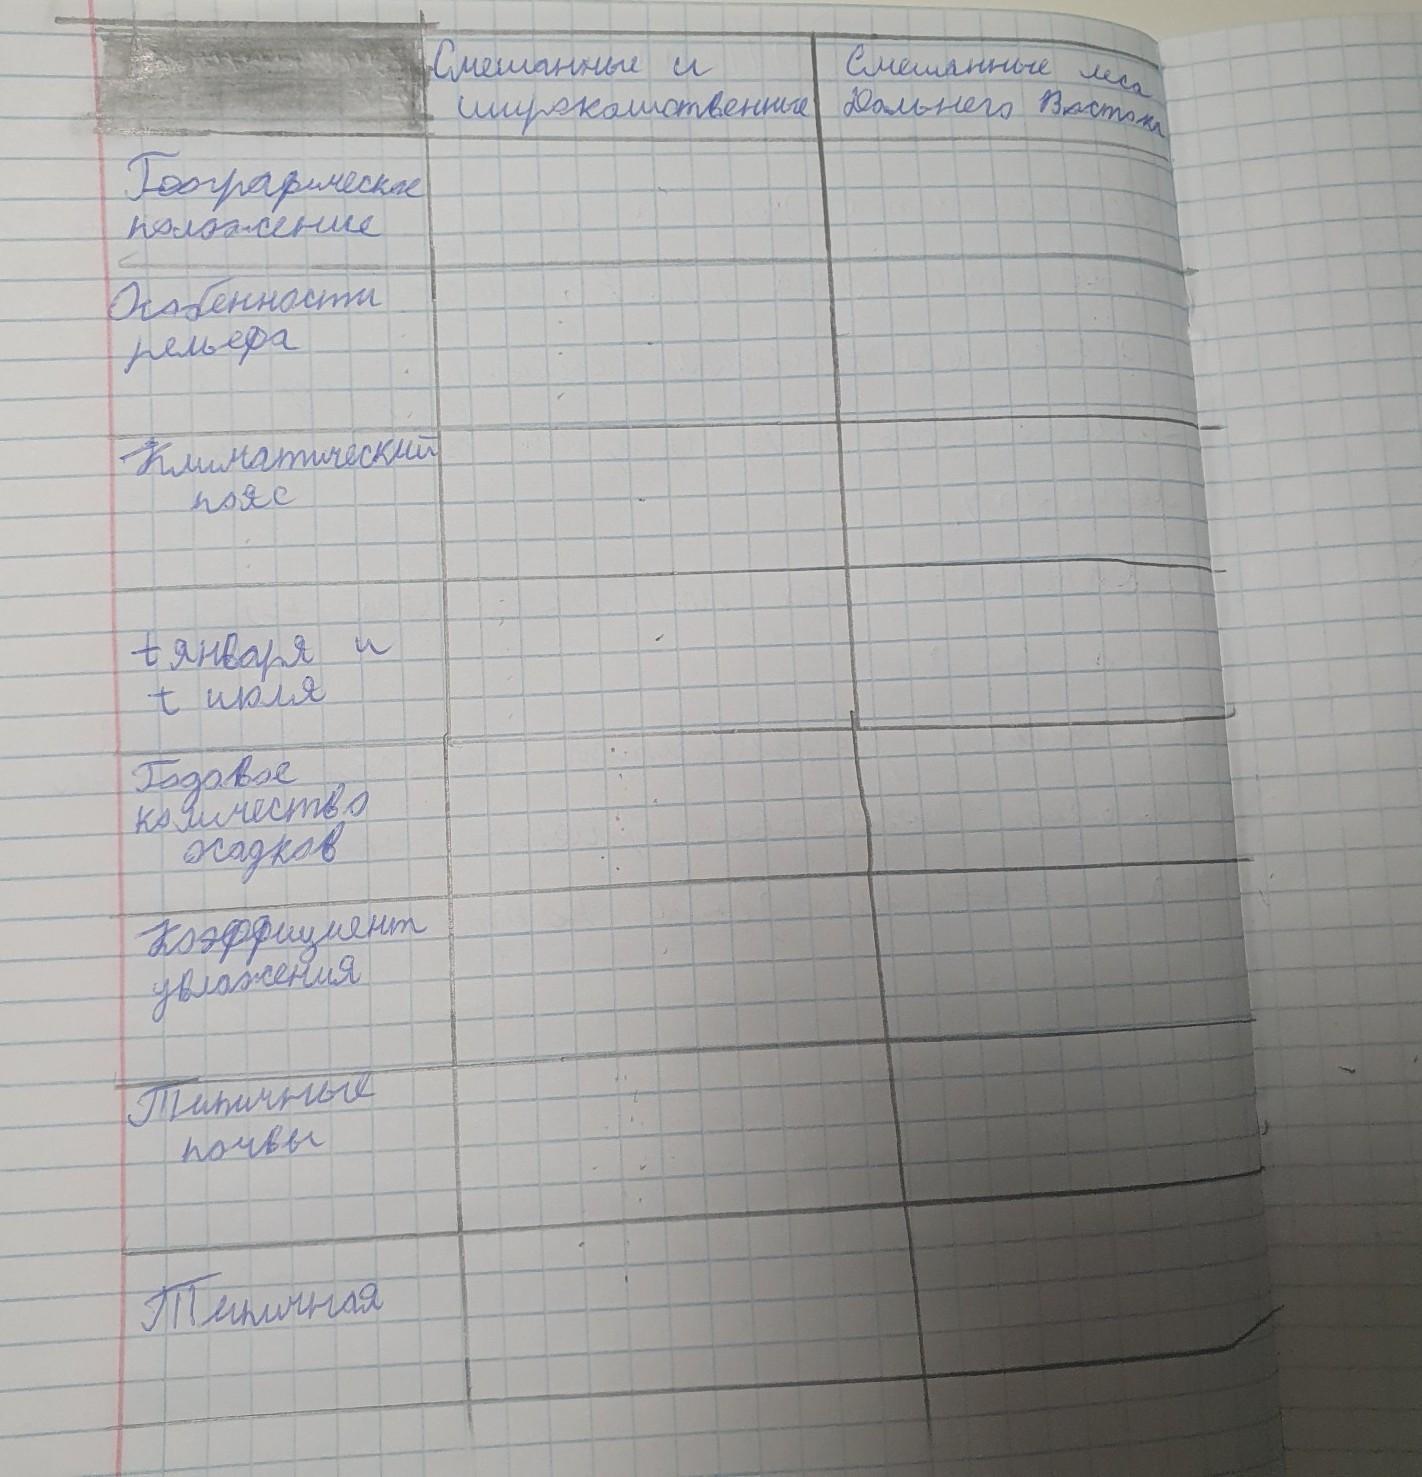 Смешанные и
широколиственные
Смешанные леса
Дальнего Востока
Географическое
положение
Особенности
рельефа
Климатический
пояс
t января и
t июля
Годовое
количество
осадков
Коэффициент
увлажения
Типичные
почвы
Типичная